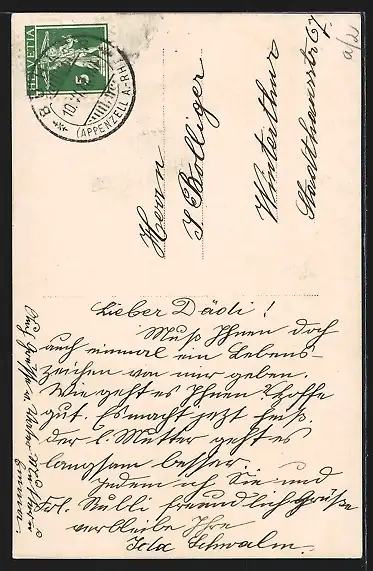 HELVETIA
5
(APPENZELL A.-RH.)
a/2
Herrn
J. Bolliger
Winterthur
Stadthausstr. 67.
Lieber Dädi!
Muß Ihnen doch
auch einmal ein Lebens-
zeichen von mir geben.
Wie geht es Ihnen? Hoffe
gut. Es macht jetzt heiß.
Der l. Mutter geht es
langsam besser.
Indem ich Sie und
Frl. Nulli freundlich Grüße
verbleibe Ihre
Ida Schwalm.